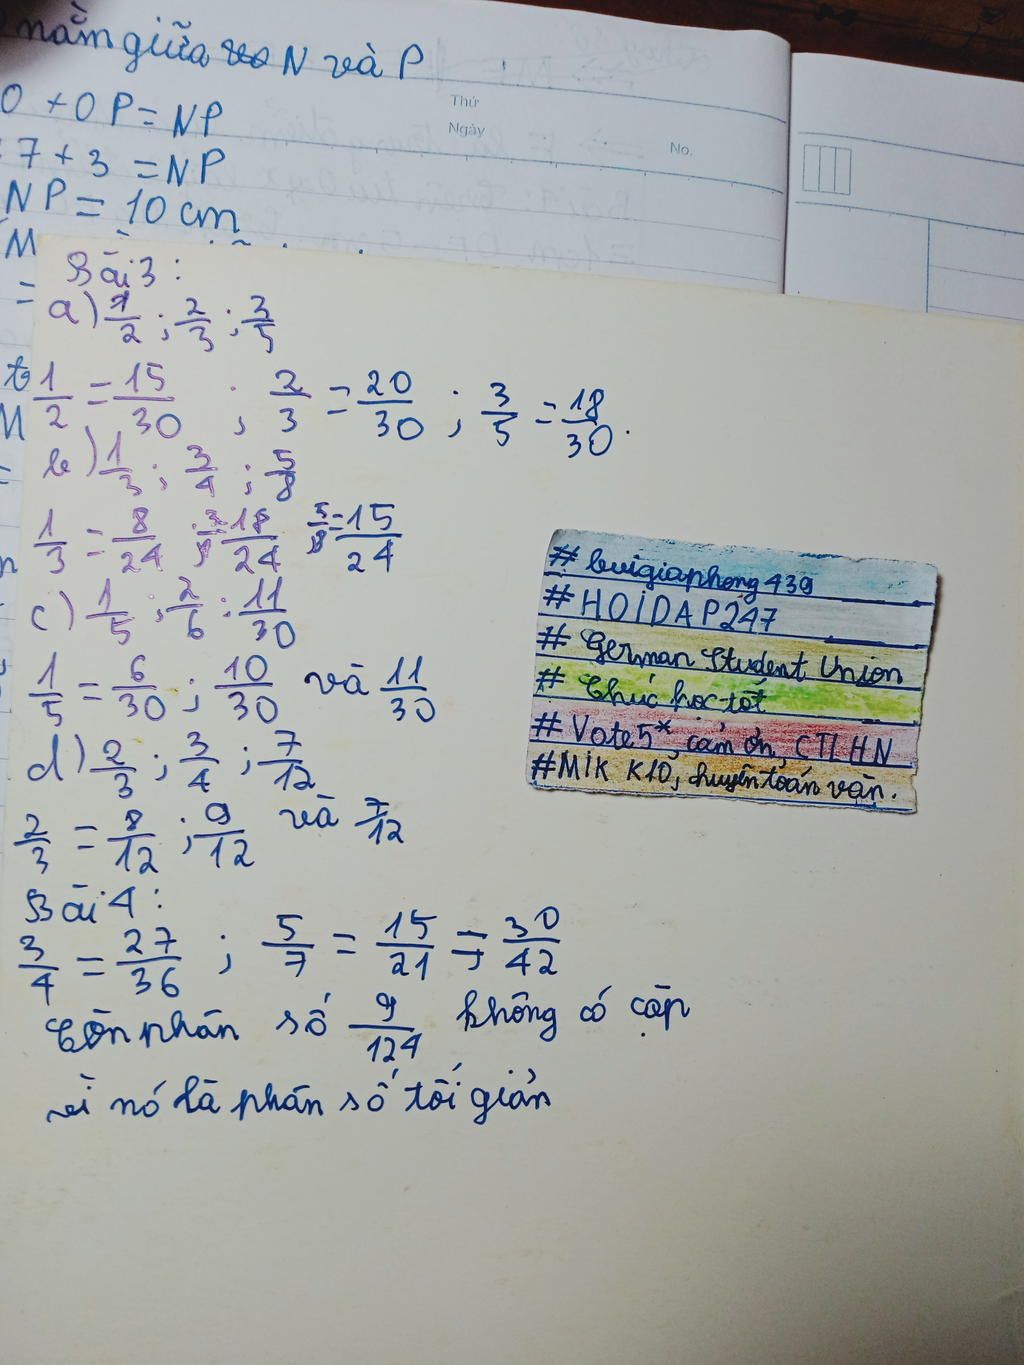 nằm giữa N và P
O + OP = NP
7 + 3 = NP
NP = 10 cm
Thứ
Ngày
No.
M
=
Bài 3:
a) 1/2 ; 2/3 ; 3/5
1/2 = 15/30 ; 2/3 = 20/30 ; 3/5 = 18/30.
b) 1/3 ; 3/4 ; 5/8
1/3 = 8/24 ; 3/4 = 18/24 ; 5/8 = 15/24
c) 1/5 ; 2/6 ; 11/30
1/5 = 6/30 ; 10/30 và 11/30
d) 2/3 ; 3/4 ; 7/12
2/3 = 8/12 ; 9/12 và 7/12
Bài 4:
3/4 = 27/36 ; 5/7 = 15/21 = 30/42
Còn phân số 9/124 không có cặp
vì nó là phân số tối giản
# buigiaphong439
# HOIDAP247
# German Student Union
# Chúc học tốt
# Vote 5*, cảm ơn, CTLHN
#MIK K10, chuyên toán văn.